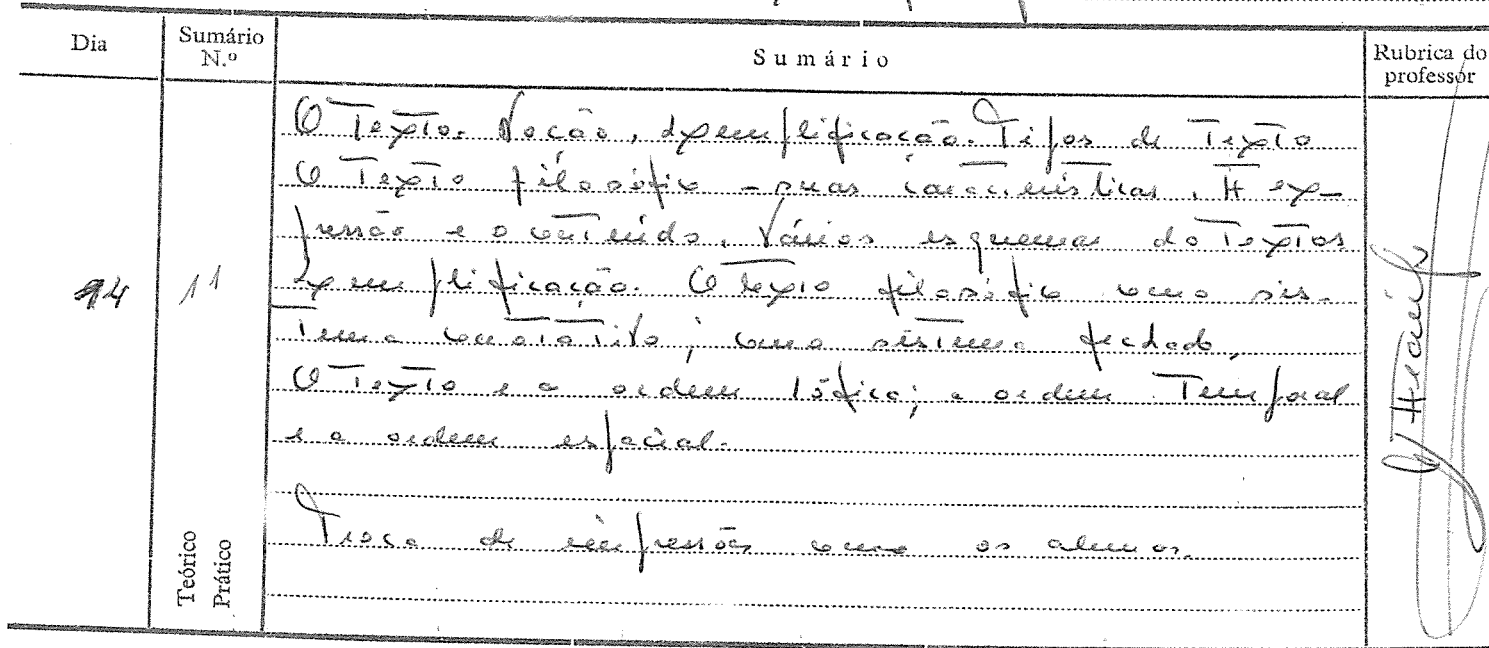 Dia
Sumário N.º
Sumário
Rubrica do professor
O Texto. Noção, exemplificação. Tipos de Texto
O Texto filosófico - suas características. A ex-
pressão e o conteúdo. Vários esquemas do Textos
exemplificação. O texto filosófico como sis-
tema conotativo; como sistema fechado,
O Texto e a ordem lógica; a ordem Temporal
e a ordem espacial.
14
11
Troca de impressões como os alunos.
Teórico
Prático